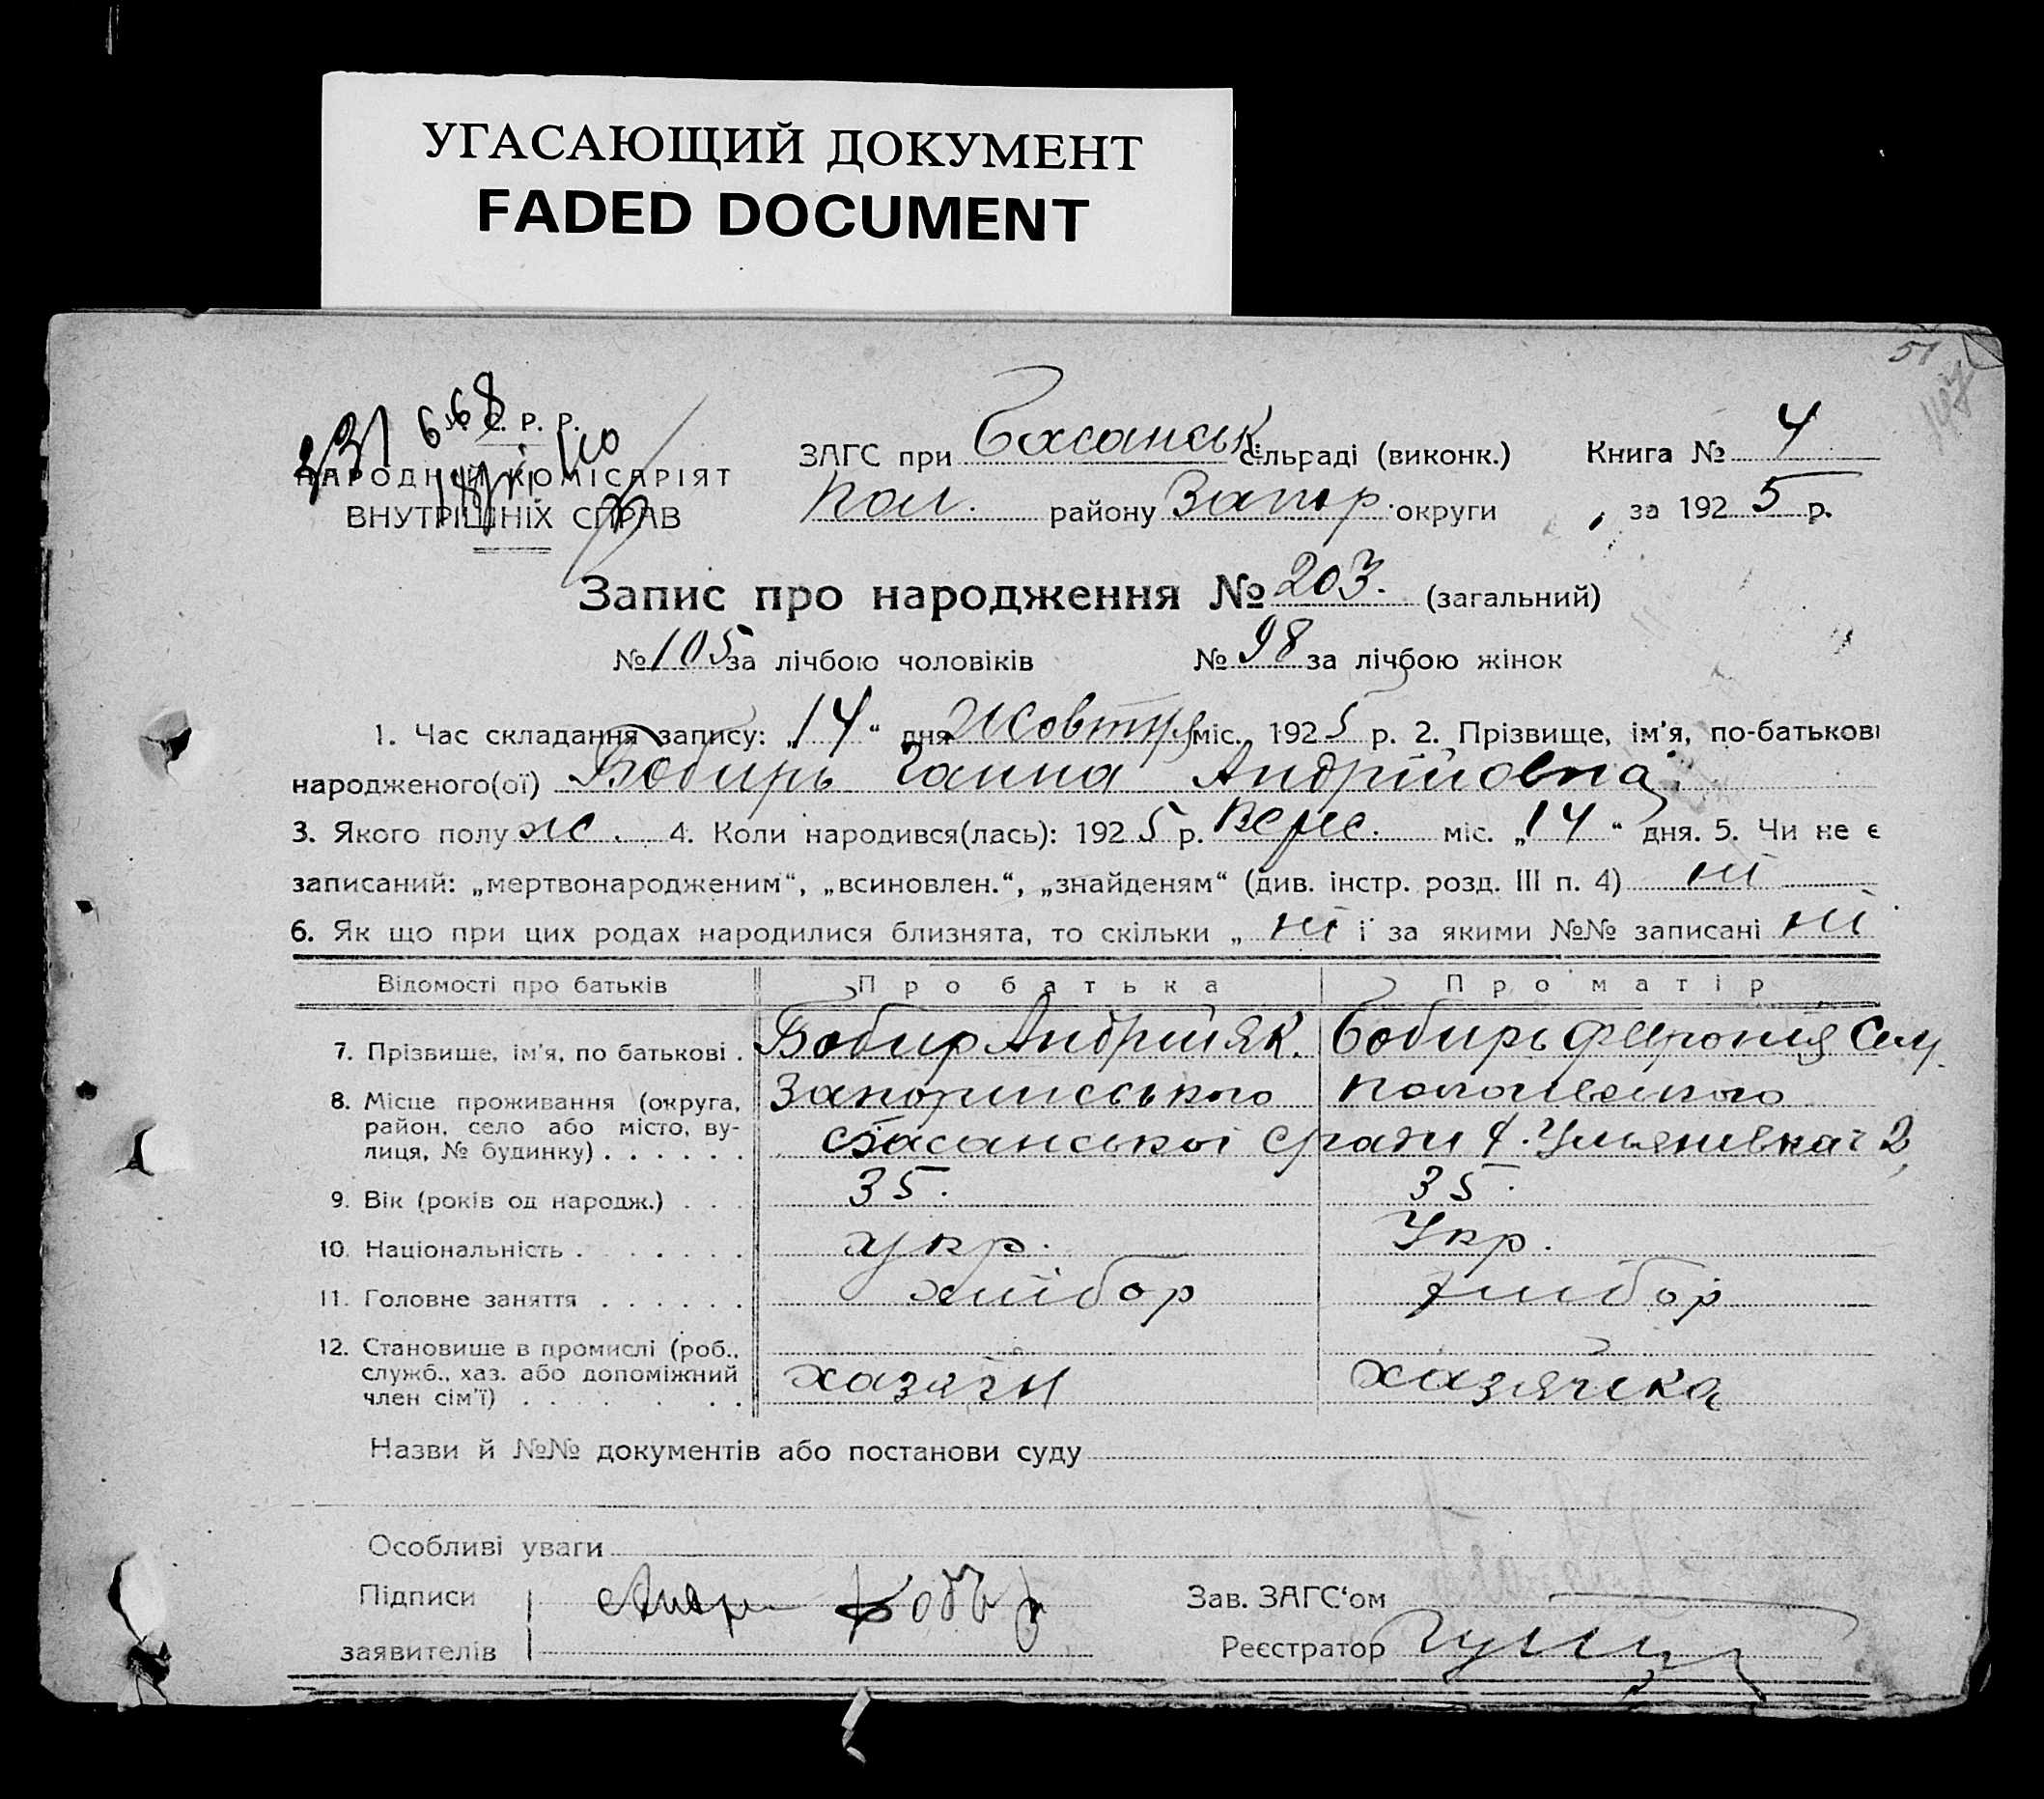 УГАСАЮЩИЙ ДОКУМЕНТ
FADED DOCUMENT
51
668
331
У. С. Р. Р.
НАРОДНИЙ КОМІСАРІЯТ
ВНУТРІШНІХ СПРАВ
ЗАГС при Басанськ. сільраді (виконк.) Книга № 4
Пол. району Запор. округи за 1925 р.
Запис про народження № 203. (загальний)
№ 105 за лічбою чоловіків № 98 за лічбою жінок
1. Час складання запису: „14“ дня Жовтня міс. 1925 р. 2. Прізвище, ім’я, по-батькові
народженого(ої) Бобирь Ганна Андрійовна
3. Якого полу ж. 4. Коли народився(лась): 1925 р. Верес. міс. „14“ дня. 5. Чи не є
записаний: „мертвонародженим“, „всиновлен.“, „знайденям“ (див. інстр. розд. III п. 4) ні
6. Як що при цих родах народилися близнята, то скільки „ ні і за якими №№ записані ні
Відомості про батьків Про батька Про матір
7. Прізвише, ім’я, по батькові . Бобир Андрій Як. Бобирь Февронія Сем.
8. Місце проживання (округа, Запоризського Пологівського
район, село або місто, ву- Басанської с/ради х. Ульянівка 2
лиця, № будинку) . . . . . .
9. Вік (років од народж.) . . . 35. 35.
10. Національність . . . . . . . укр. Укр.
11. Головне заняття . . . . . . хлібор хлібор
12. Становише в промислі (роб.,
служб., хаз. або допоміжний хазяїн хазяйка
член сім’ї) . . . . . . .
Назви й №№ документів або постанови суду
Особливі уваги
Підписи Андрій Бобир Зав. ЗАГС‘ом
заявителів Реєстратор